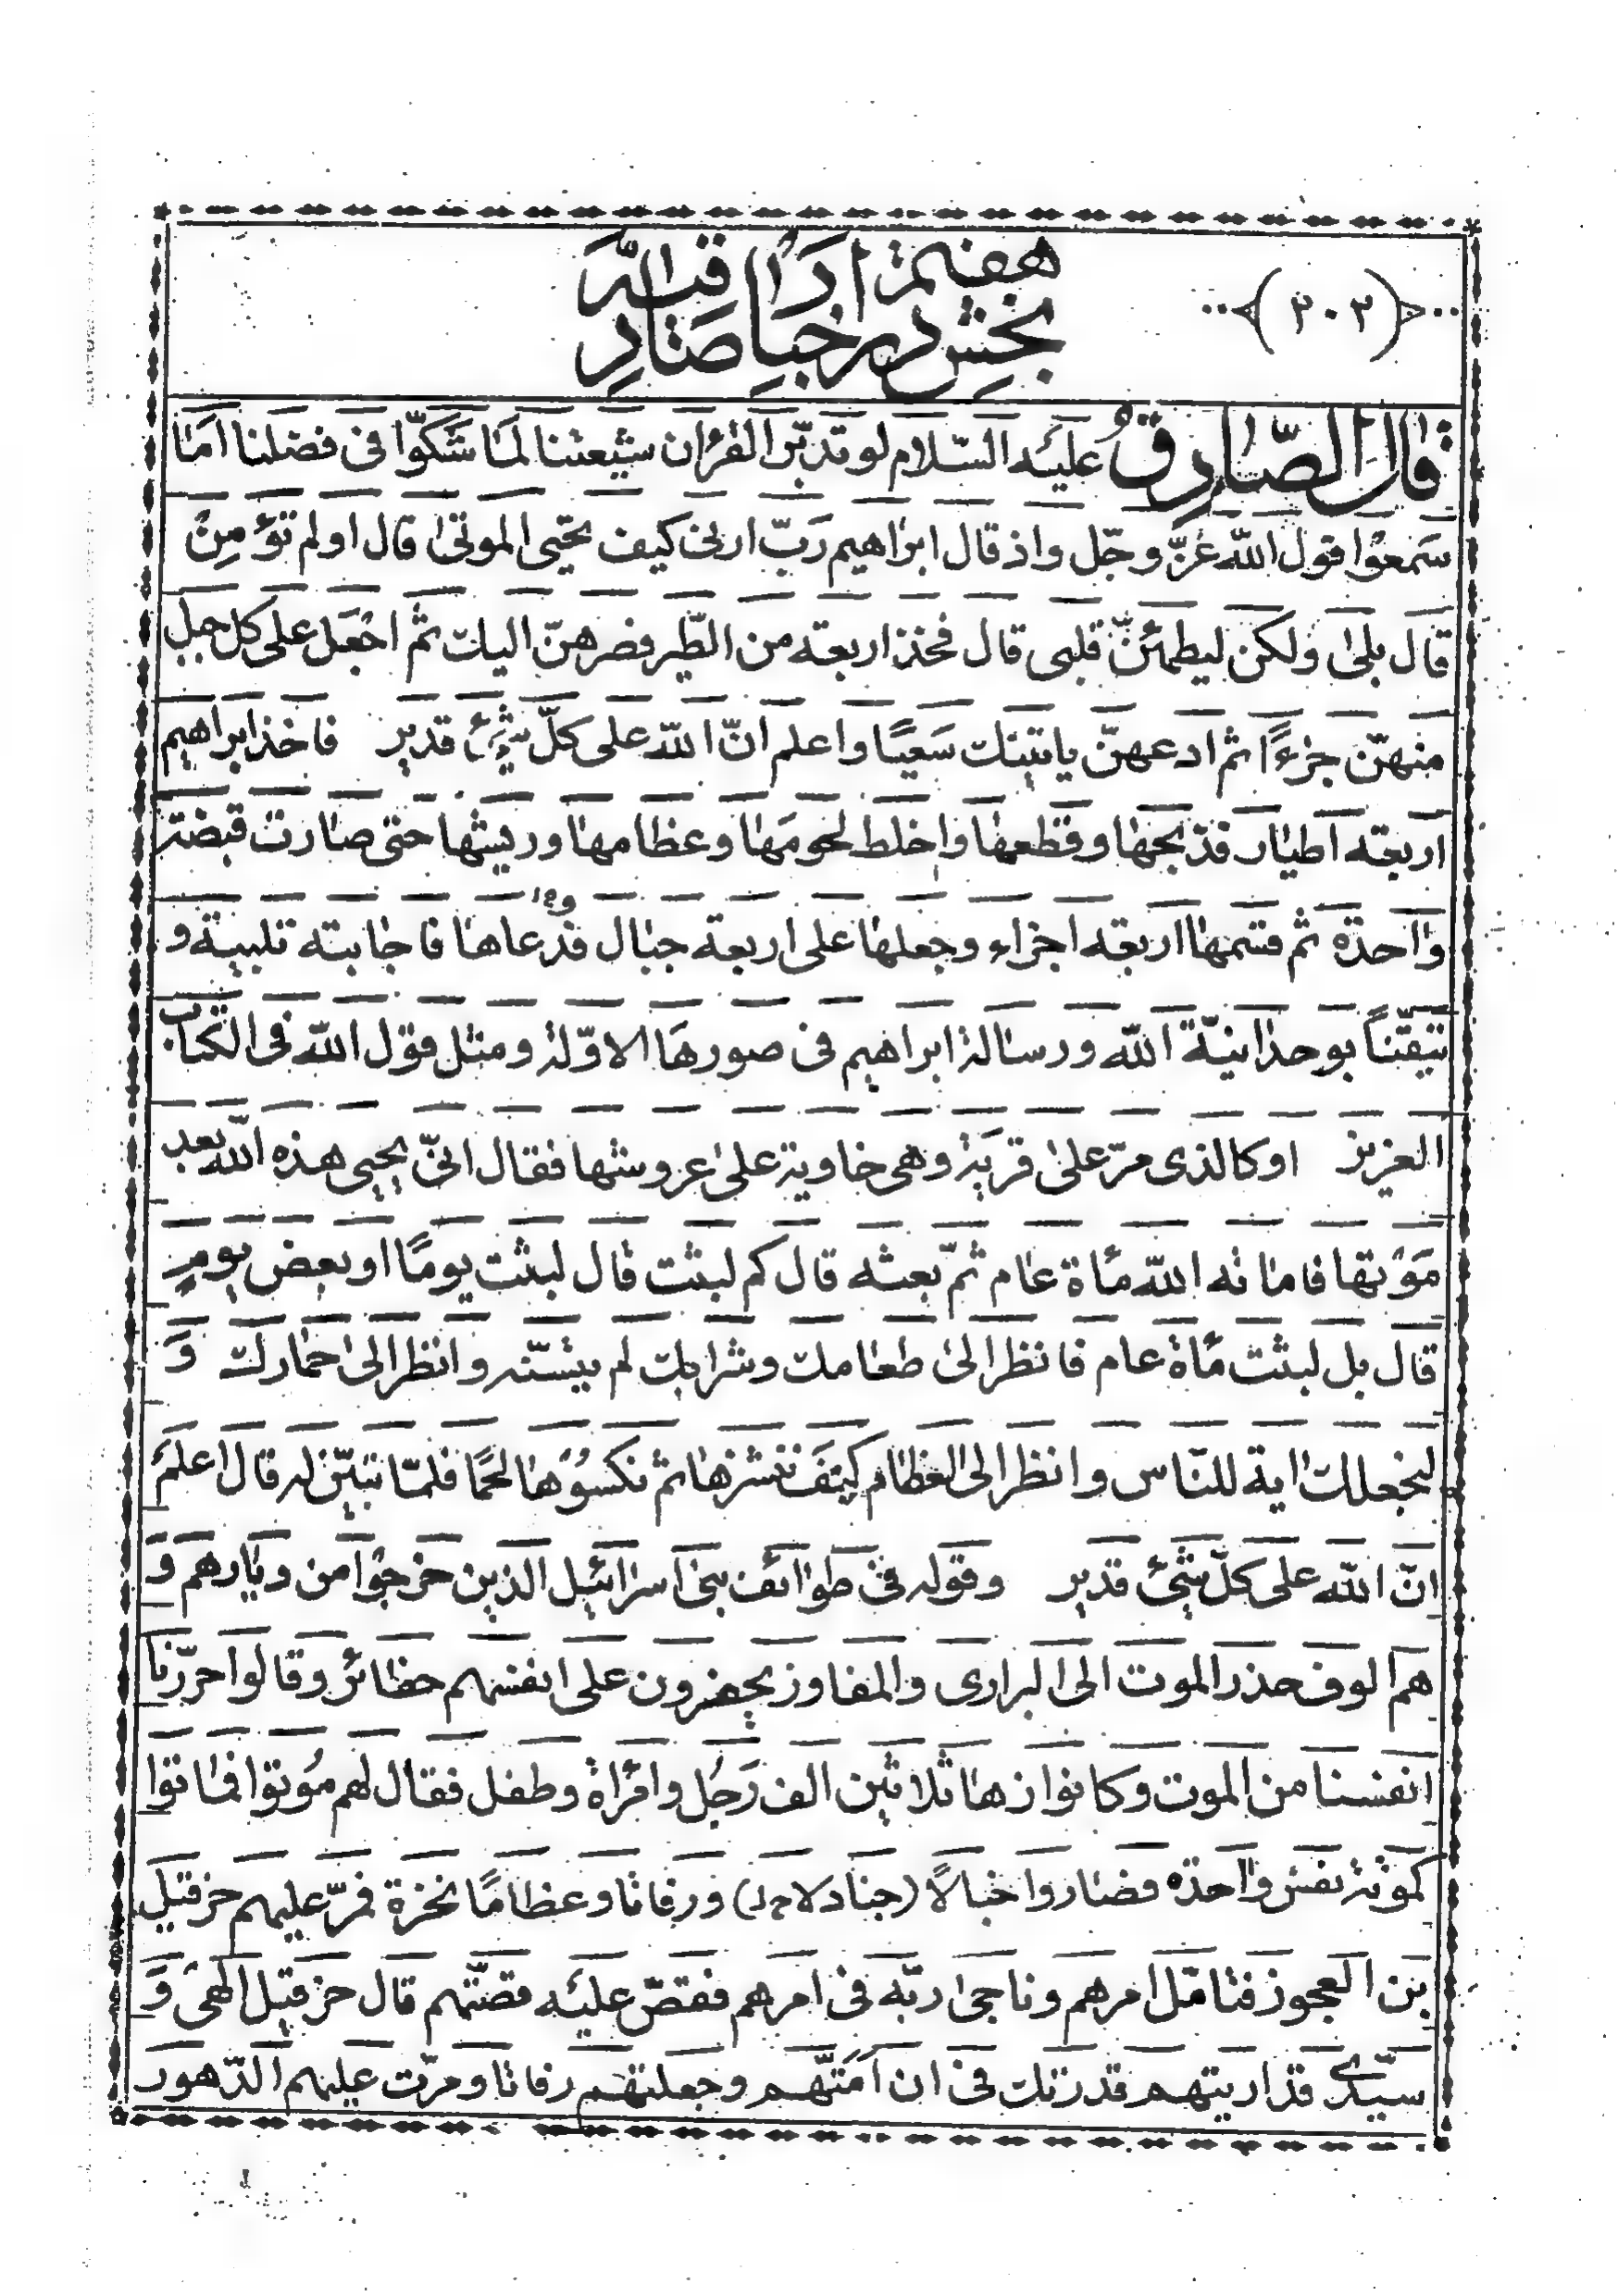 هفتم از اقبال
بخش در اخبار صادر
(٣٠٣)
قال الصّادق عليه السّلام لو تدبّر القرٰان شيعتنا لما شكّوا فى فضلنا امٰا
سَمعوُا قول اللّه عَزّ و جّل و اذ قال ابرٰاهيم رَبّ ارنى كيف تحيى الموتىٰ قال اولم تؤمِنْ
قال بلىٰ ولكن ليطمئنّ قلبى قال فخذ اربعة من الطّير فصرهنّ اليك ثمّ اجْعَل على كل جبل
منهنّ جزءًا ثم ادعهنّ ياتينك سَعيًا و اعلم انّ اللّه على كلّ شئ قدير فاخذ ابراهيم
اربعة اطيٰار فذبحهٰا و قطعهٰا و اخلط لحومَهٰا و عظامهٰا و ريشها حتى صٰارت قبضة
وٰاحدة ثم قسّمهٰا اربعة اجزاء و جعلهٰا على اربعة جبٰال فدعاهٰا فاجٰابته تلبية و
تيقّناً بوحدٰانيّة اللّه و رسٰالة ابراهيم فى صورهَا الاوّلة و مثل قول اللّه فى الكتٰاب
العزيز اوكالذى مرّ علىٰ قريَة و هى خاوية علىٰ عروشها فقال انّى يحيى هذه اللّه بعد
مَوْتها فامٰاته اللّه مأة عٰام ثمّ بعثه قال كم لبثت قٰال لبثت يومًا او بعض يومٍ
قٰال بل لبثت مأة عام فانظر الىٰ طعٰامك و شرابك لم يتسنّه و انظر الىٰ حمٰارك وَ
لنجعلك اية للنّاس و انظر الى العظٰام كيفَ ننشزهٰا ثم نكسوُهٰا لحمًا فلمّا تبيّن له قال اعلمَ
انّ اللّه على كلّ شئ قدير و قوله فى طوٰائف بنى اسرٰائيل الذين خرجوُا من ديٰارهم وَ
هم الوف حذر الموت الى البرارى و المفاوز يحضرون على انفسهم حظائر و قالوا حرّزنا
انفسنا من الموت و كانوا زهٰا ثلاثين الف رَجُل و امْرأة و طفل فقال لهم مُوتوا فمٰاتوا
كموتة نفس وٰاحدة فصٰاروا خبالاً (جنادلا خ‌ل) و رفاتا و عظامًا نخرة فمرّ عليهم حزقيل
بن العجوز فتامّل امرهم و ناجىٰ ربّه فى امرهم فقصّ عليَه قصّتهم قال حزقيل الهىَ وَ
سيّدى قد اريتهم قدرتك فى ان اَمَتَّهم و جعلتهم رفاتا و مرّت عليهم الدّهور